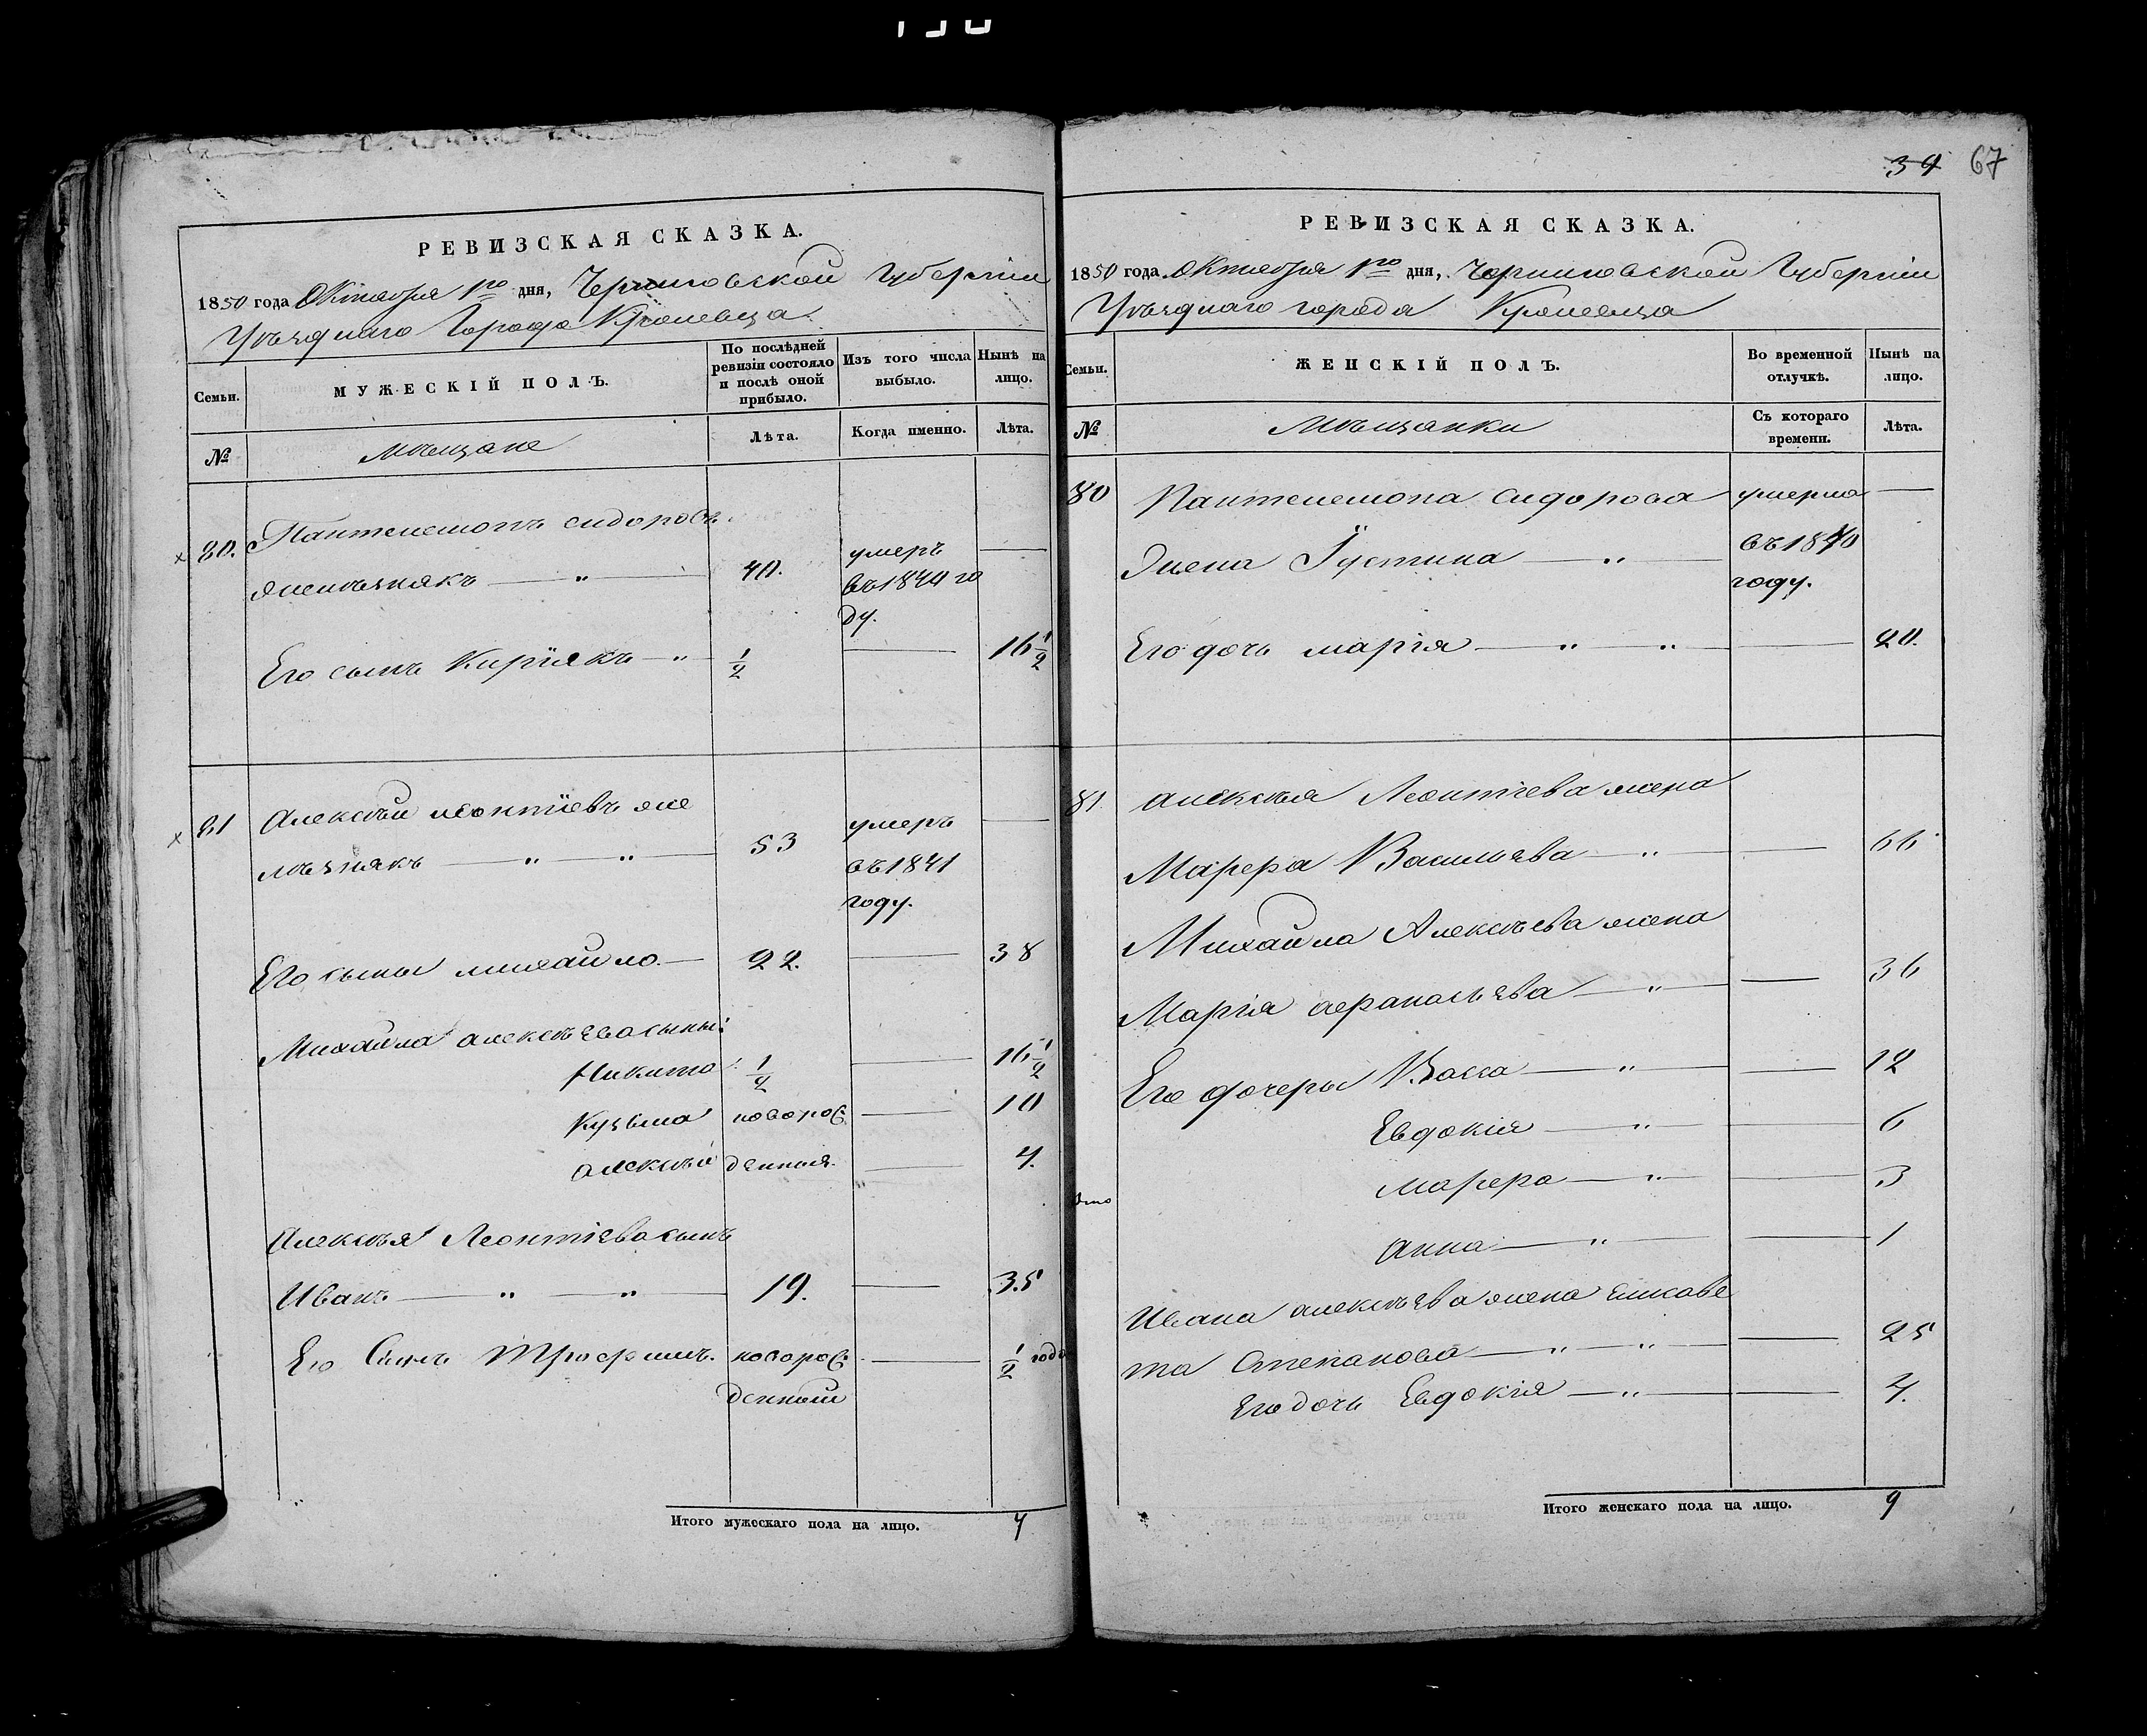 39 67
РЕВИЗСКАЯ СКАЗКА.
1850 года Октября 1го дня, Черниговской Губерніи
Уѣзднаго Города Кролевца
Семьи.
МУЖЕСКІЙ ПОЛЪ.
По послѣдней ревизіи состояло и послѣ оной прибыло.
Изъ того числа выбыло.
Нынѣ на лицо.
№
Мѣщане
Лѣта.
Когда именно.
Лѣта.
80. Пантелемонъ Сидоровъ
Желѣзнякъ — 40. умеръ въ 1840 го
ду.
Его сынъ Кирїякъ — 1/2 — 16 1/2
81 Алексѣй Леонтіевъ Же
лѣзнякъ — 53 умеръ въ 1841
году.
Его сыны Михайло — 22. — 38
Михайла Алексѣева сыны:
Никита 1/2 — 16 1/2
Кузьма новорож — 10
Алексѣй денныя. — 4.
Алексѣя Леонтіева сынъ
Иванъ — 19. — 35
Его Сынъ Трофимъ. новорож — 1/2 года
денный
Итого мужескаго пола на лицо. 7
РЕВИЗСКАЯ СКАЗКА.
1850 года Октября 1го дня, Черниговской Губерніи
Уѣзднаго города Кролевца
Семьи.
ЖЕНСКІЙ ПОЛЪ.
Во временной отлучкѣ.
Нынѣ на лицо.
№
Мѣщанки
Съ котораго времени.
Лѣта.
80 Пантелемона Сидорова умерла —
Жена Їустина — въ 1840
году.
Его дочь Марія — 20.
81. Алексѣя Леонтіева жена
Марѳра Васильева — 66
Михайла Алексѣева жена
Марія — 36
Его дочеры Васса — 12
Евдокія — 6
Марѳра — 3
Анна — 1
Ивана Алексѣева жена Елисаве
та Степанова — 25
Его дочь Евдокія — 4.
Итого женскаго пола на лицо. 9